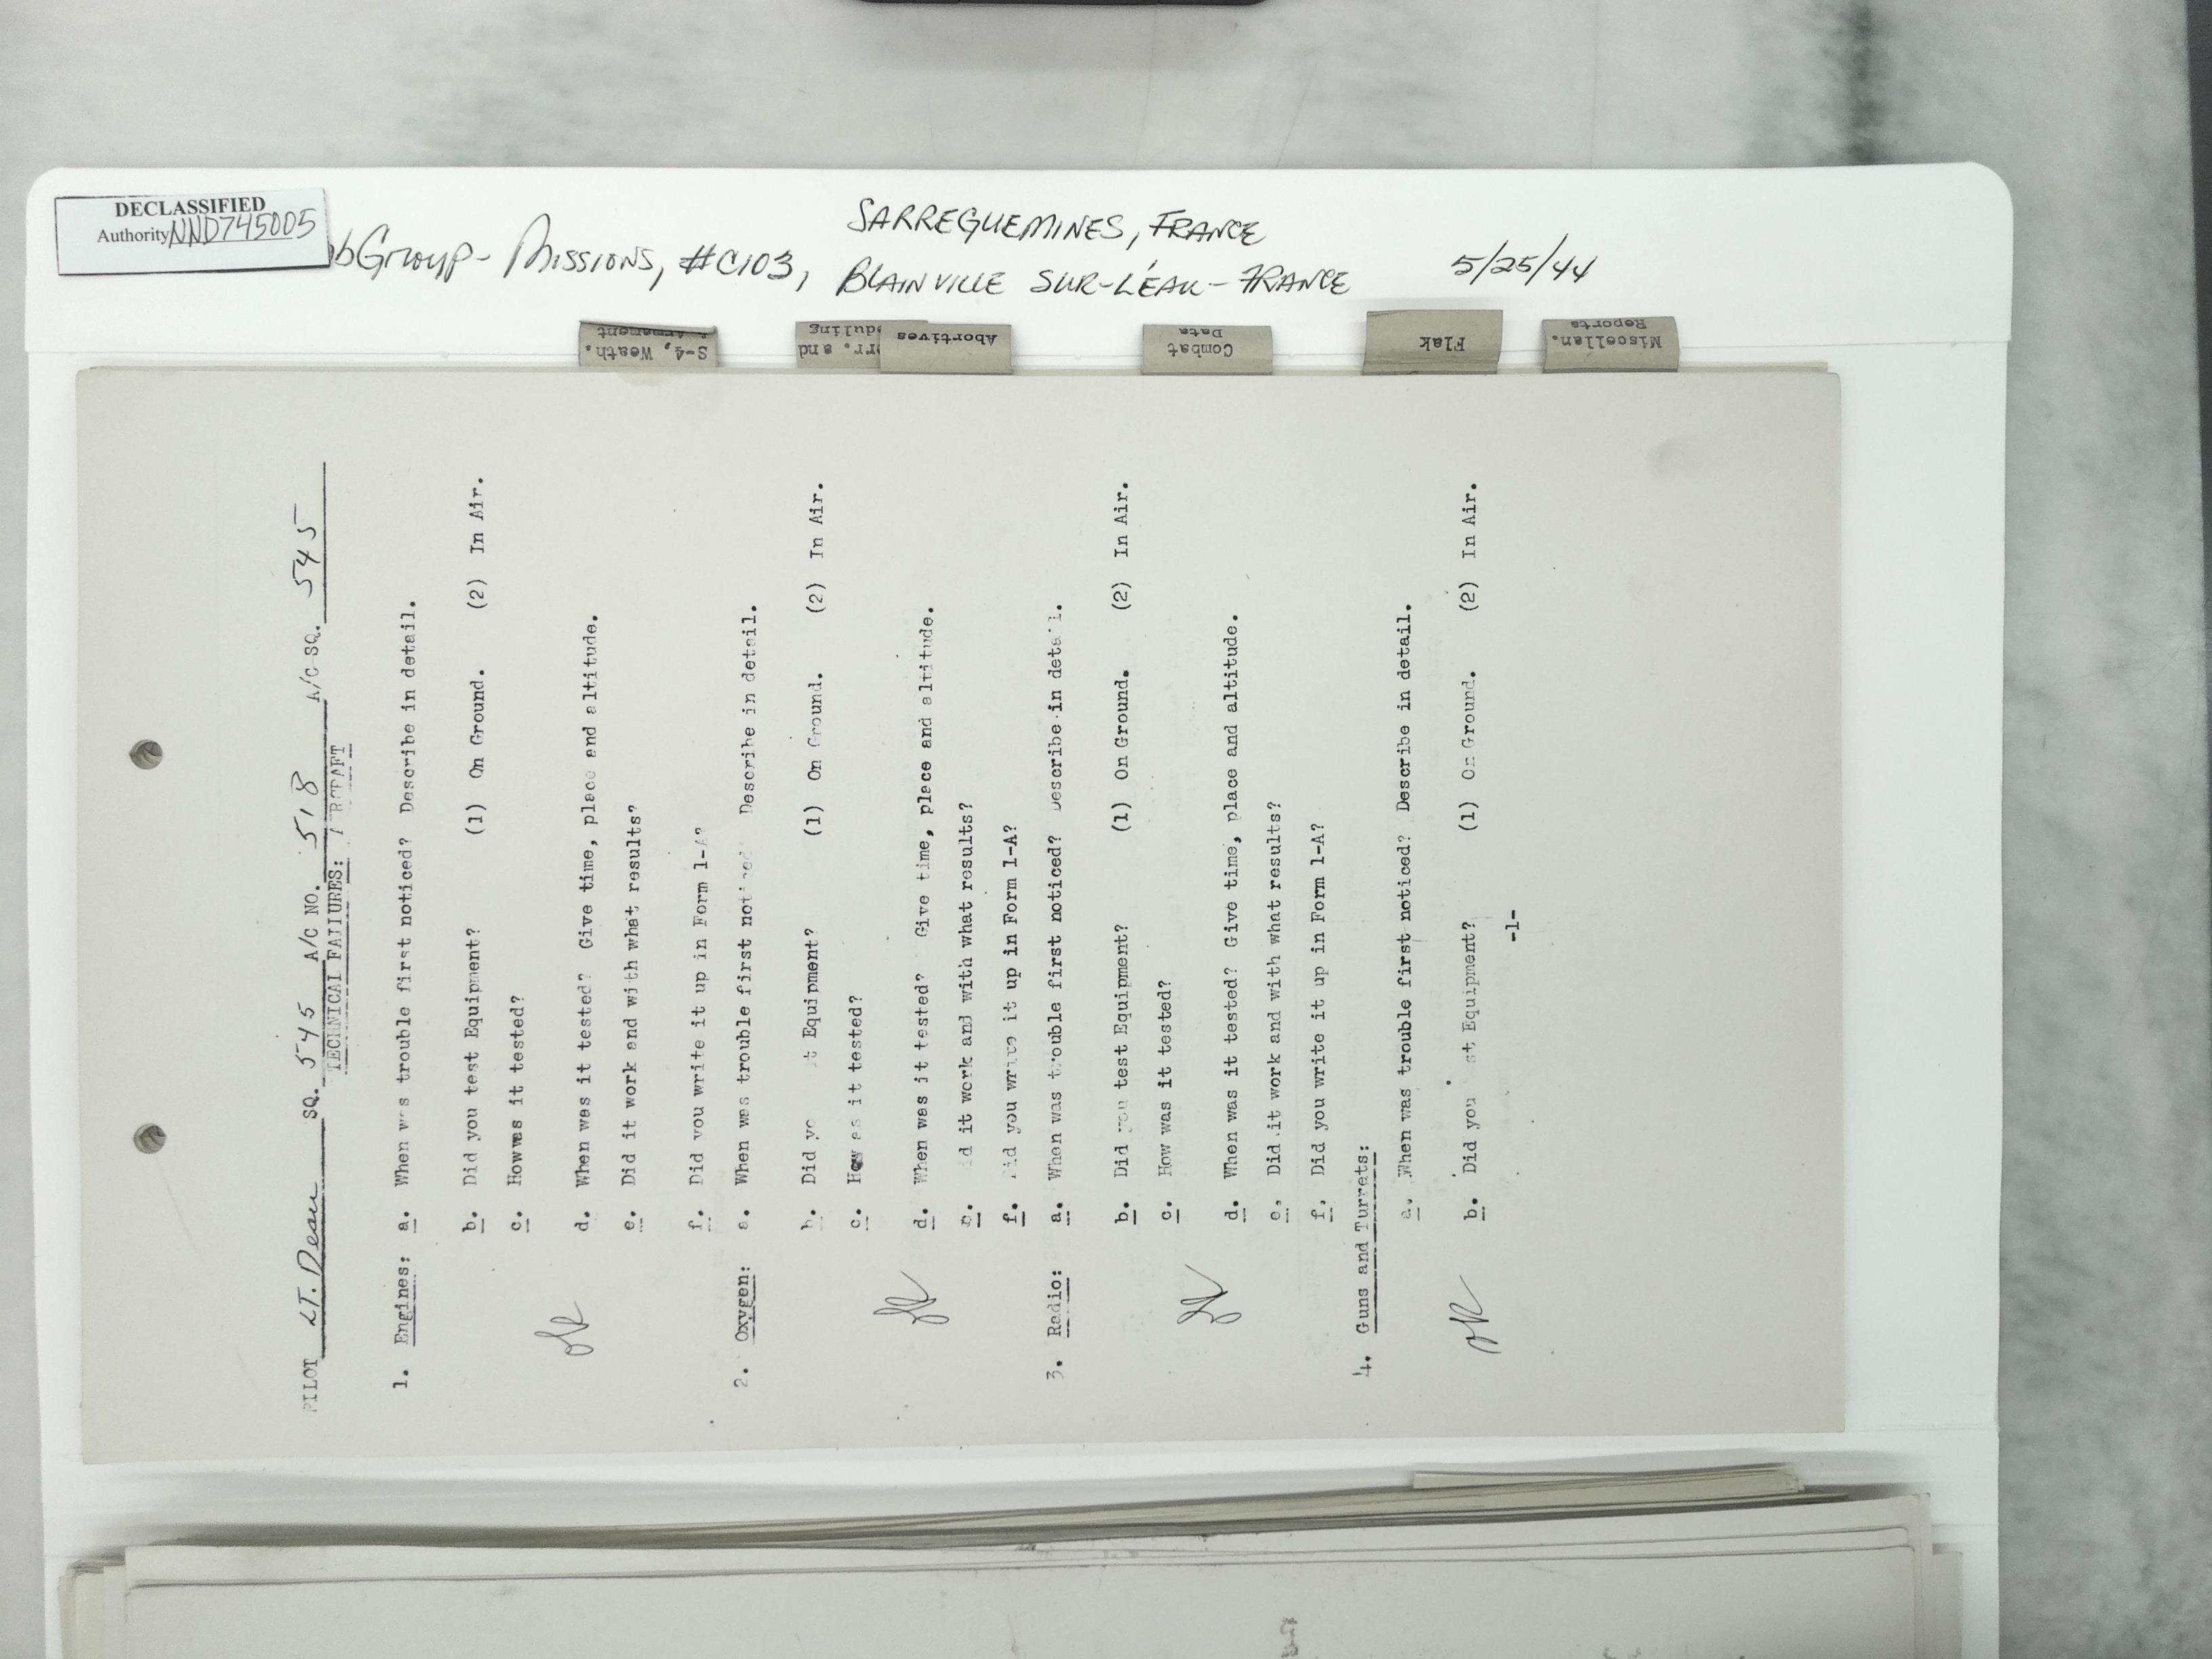 DECLASSIFIED
Authority NND745005
bGroup - Missions, #C103,
SARREGUEMINES, FRANCE
BLAINVILLE SUR-L'EAU - FRANCE
5/25/44
S-4, Weath.
& Armament
rr. and
duling
Abortives
Combat
Data
Flak
Miscellan.
Reports
PILOT LT. Dean SQ. 545 A/C NO. 518 A/C SQ. 545
TECHNICAL FAILURES:
1. Engines: a. When was trouble first noticed? Describe in detail.
b. Did you test Equipment? (1) On Ground. (2) In Air.
c. Howwas it tested?
d. When was it tested? Give time, place and altitude.
ok
e. Did it work and with what results?
f. Did you write it up in Form 1-A?
2. Oxygen: a. When was trouble first noticed Describe in detail.
b. Did yo t Equipment? (1) On Ground. (2) In Air.
c. How as it tested?
ok
d. When was it tested? Give time, place and altitude.
e. id it work and with what results?
f. Did you write it up in Form 1-A?
3. Radio: a. When was trouble first noticed? Describe in detail.
b. Did you test Equipment? (1) On Ground. (2) In Air.
c. How was it tested?
ok
d. When was it tested? Give time, place and altitude.
e. Did it work and with what results?
f. Did you write it up in Form 1-A?
4. Guns and Turrets:
a. When was trouble first noticed? Describe in detail.
b. Did you st Equipment? (1) On Ground. (2) In Air.
ok
-1-